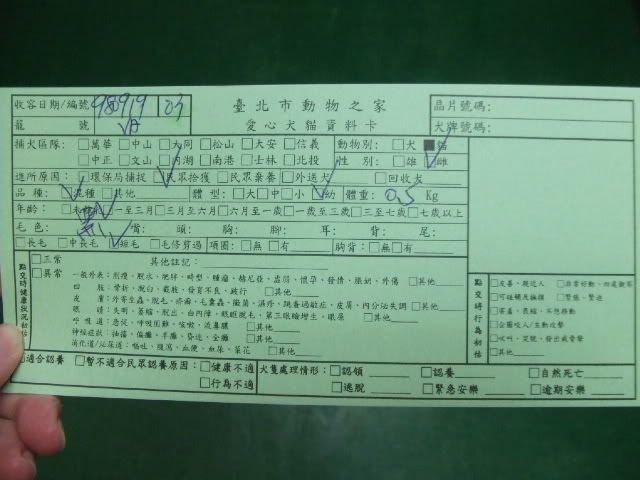 收容日期/編號 98919 03
臺北市動物之家
晶片號碼:
籠 號
愛心犬貓資料卡
犬牌號碼:
捕犬區隊: □萬華 □中山 □大同 □松山 □大安 □信義 動物別: □犬 ■貓
□中正 □文山 □內湖 □南港 □士林 □北投 性 別: □雄 □雌
進所原因: □環保局捕捉 □民眾拾獲 □民眾棄養 □外送犬 □回收犬
品 種: □混種 □其他 體 型: □大 □中 □小 □幼 體重: 0.5 Kg
年齡: □未 □一至三月 □三月至六月 □六月至一歲 □一歲至三歲 □三至七歲 □七歲以上
毛 色: 黑 嘴: 頭: 胸: 腳: 耳: 背: 尾:
□長毛 □中長毛 □短毛 □毛修剪過 項圈: □無 □有 胸背: □無 □有
點交時健康狀況初估
□正常 其他註記:
□異常 一般外表: 消瘦、脫水、肥胖、畸型、腫瘤、赫尼亞、虛弱、懷孕、發情、脹奶、外傷 □其他
四 肢: 骨折、脫臼、截肢、發育不良、跛行 □其他
皮 膚: 外寄生蟲、脫毛、疥癬、毛囊蟲、黴菌、濕疹、跳蚤過敏症、皮屑、內分泌失調 □其他
眼 睛: 失明、萎縮、脫出、白內障、眼睚脫毛、第三眼瞼增生、眼屎 □其他
呼 吸 道: 急促、呼吸困難、咳嗽、流鼻膿 □其他
神經症狀: 抽搐、偏癱、半癱、昏迷、全癱 □其他
消化道/泌尿道: 嘔吐、腹瀉、血便、血尿、菜花 □其他
點交時行為初估
□友善、親近人 □非常好動、四處觀望
□可碰觸及撫摸 □緊張、緊迫
□害羞、畏縮、不想移動
□企圖咬人/主動攻擊
□吠叫、哭號、發出威脅聲
□其他
□適合認養 □暫不適合民眾認養原因: □健康不適 犬隻處理情形: □認領 □認養 □自然死亡
□行為不適 □逃脫 □緊急安樂 □逾期安樂